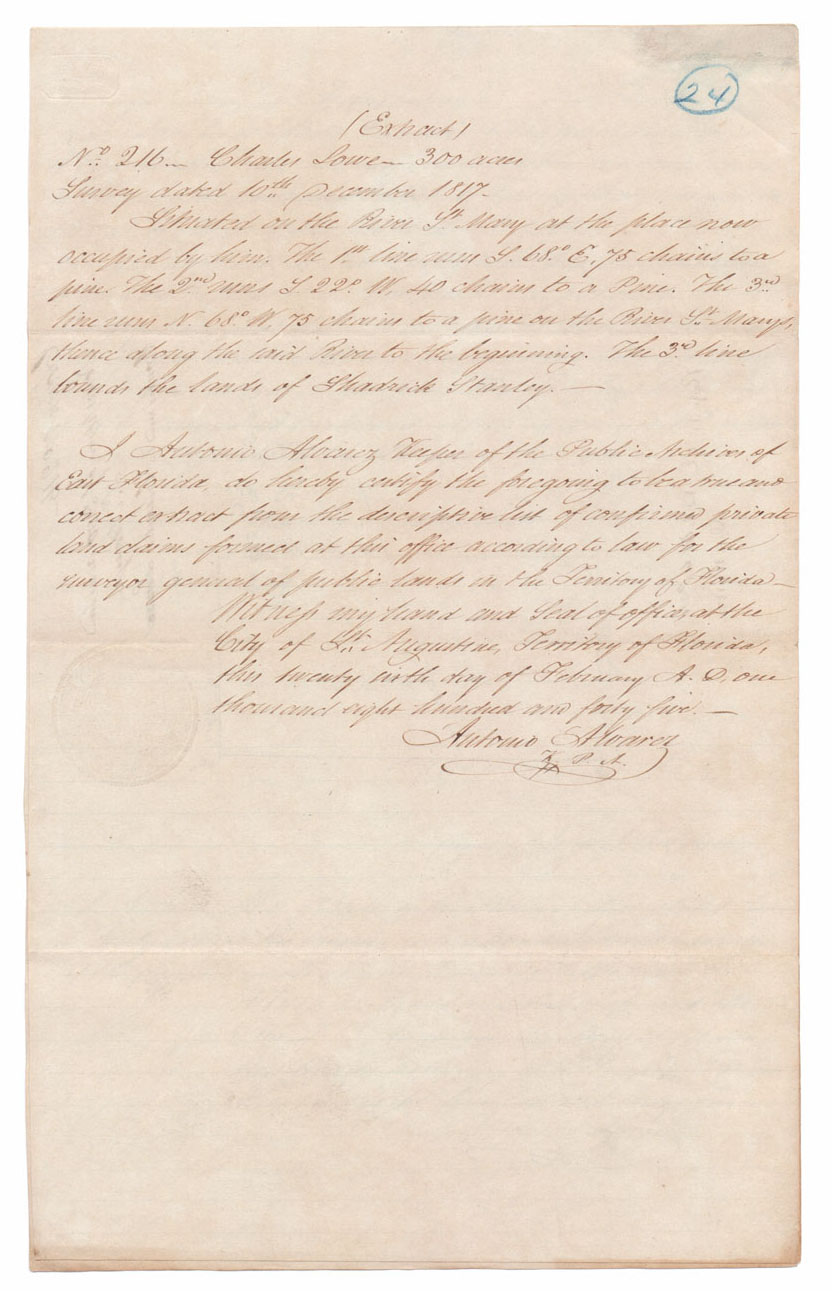 24
(Extract)
No. 216 — Charles Lowe — 300 acres
Survey dated 10th December 1817 -
Situated on the River St. Mary at the place now
occupied by him. The 1st line runs S. 68° E, 75 chains to a
pine. The 2nd runs S. 22° W, 40 chains to a Pine. The 3rd
line runs N. 68° W, 75 chains to a pine on the River St. Marys,
thence along the said River to the beginning. The 3rd line
bounds the lands of Shadrick Stanley. —
I Antonio Alvarez Keeper of the Public Archives of
East Florida, do hereby certify the foregoing to be a true and
correct extract from the descriptive list of confirmed private
land claims formed at this office according to law for the
surveyor general of public lands in the Territory of Florida —
Witness my hand and Seal of office, at the
City of St. Augustine, Territory of Florida,
this twenty sixth day of February A. D, one
thousand eight hundred and forty five. —
Antonio Alvarez
K. P. A.